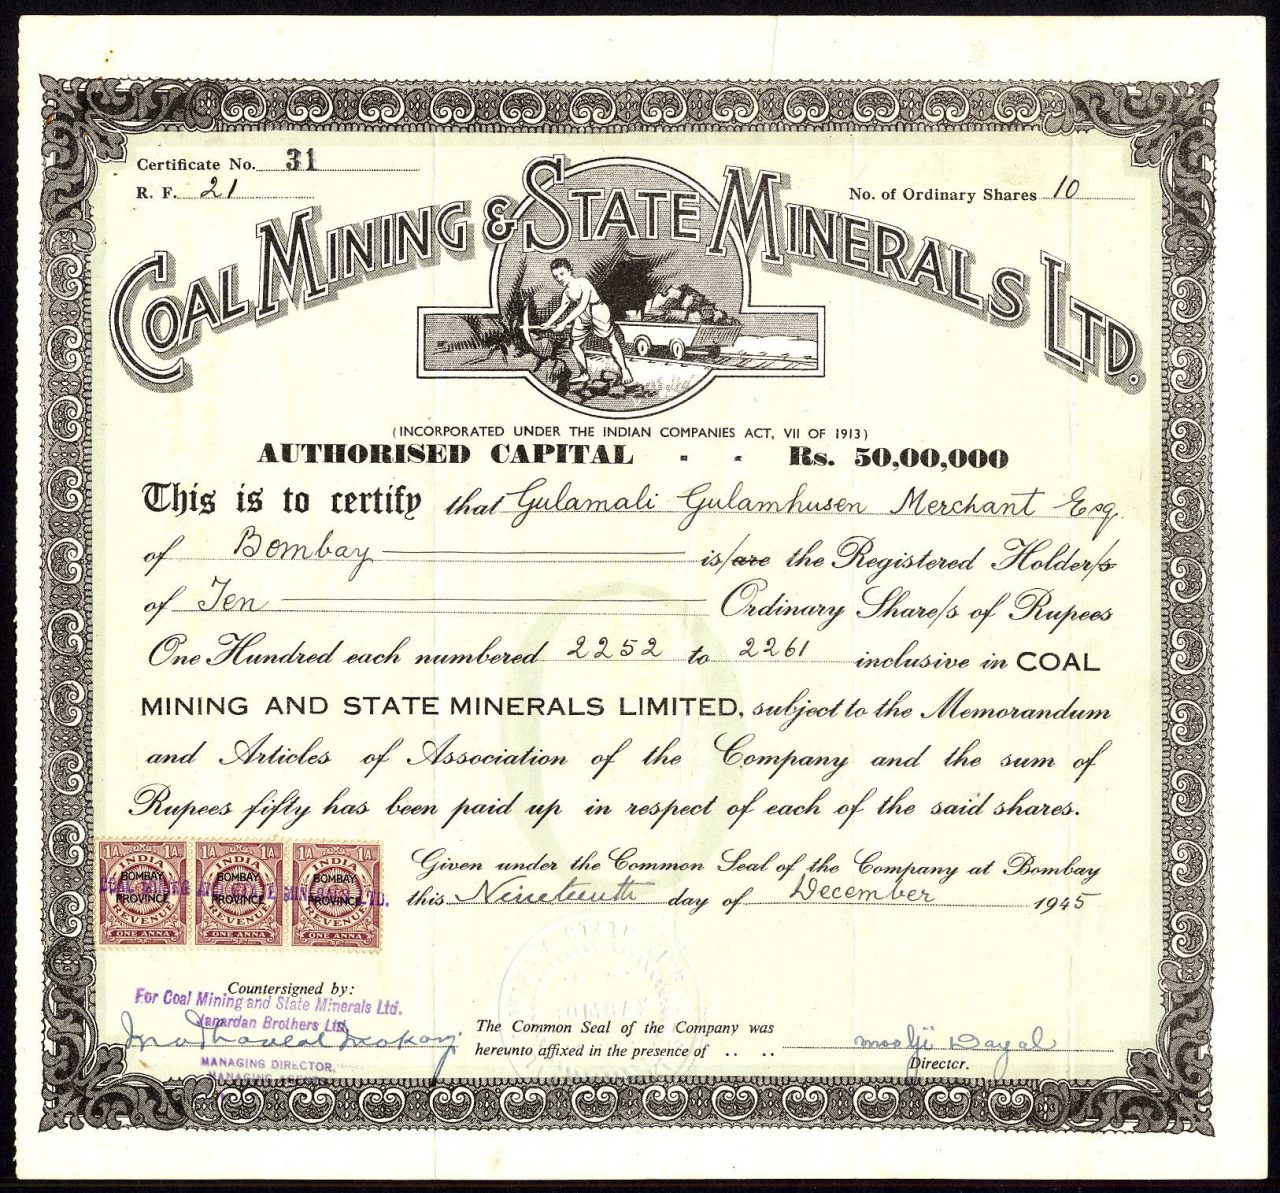 Certificate No. 31
R. F. 21
No. of Ordinary Shares 10
COAL MINING & STATE MINERALS LTD.
(INCORPORATED UNDER THE INDIAN COMPANIES ACT, VII OF 1913)
AUTHORISED CAPITAL - - Rs. 50,00,000
This is to certify that Gulamali Gulamhusen Merchant Esq.
of Bombay is/are the Registered Holder/s
of Ten Ordinary Share/s of Rupees
One Hundred each numbered 2252 to 2261 inclusive in COAL
MINING AND STATE MINERALS LIMITED, subject to the Memorandum
and Articles of Association of the Company and the sum of
Rupees fifty has been paid up in respect of each of the said shares.
1A 1A 1A 1A 1A 1A
INDIA INDIA INDIA
BOMBAY BOMBAY BOMBAY
COAL MINING AND STATE MINERALS LTD.
PROVINCE PROVINCE PROVINCE
REVENUE REVENUE REVENUE
ONE ANNA ONE ANNA ONE ANNA
Given under the Common Seal of the Company at Bombay
this Nineteenth day of December 1945
Countersigned by:
For Coal Mining and State Minerals Ltd.
Janardan Brothers Ltd.
MANAGING DIRECTOR,
MANAGING AGENTS
The Common Seal of the Company was
hereunto affixed in the presence of .. ..
Moolji Dayal
Director.